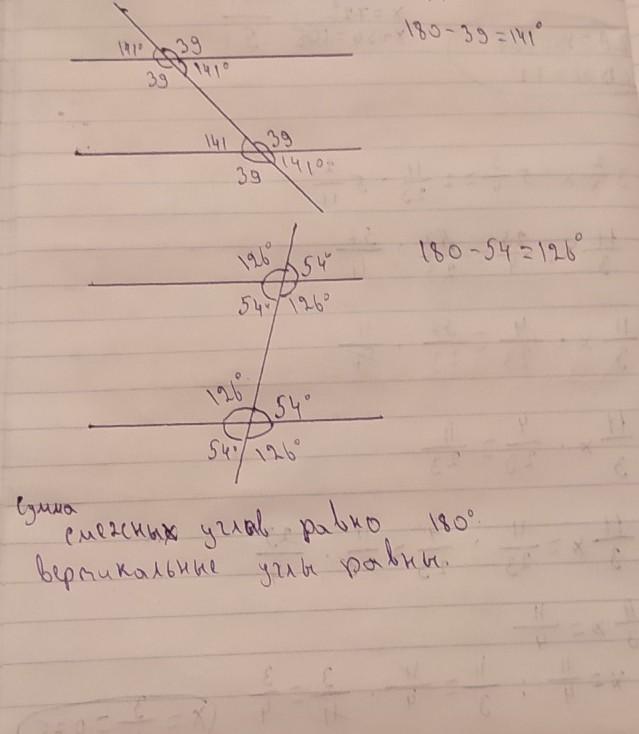 141° 39 180-39=141°
39 141°
141 39
39 141°
126° 54° 180-54=126°
54° 126°
126° 54°
54° 126°
Сумма
смежных углов равно 180°
вертикальные углы равны.